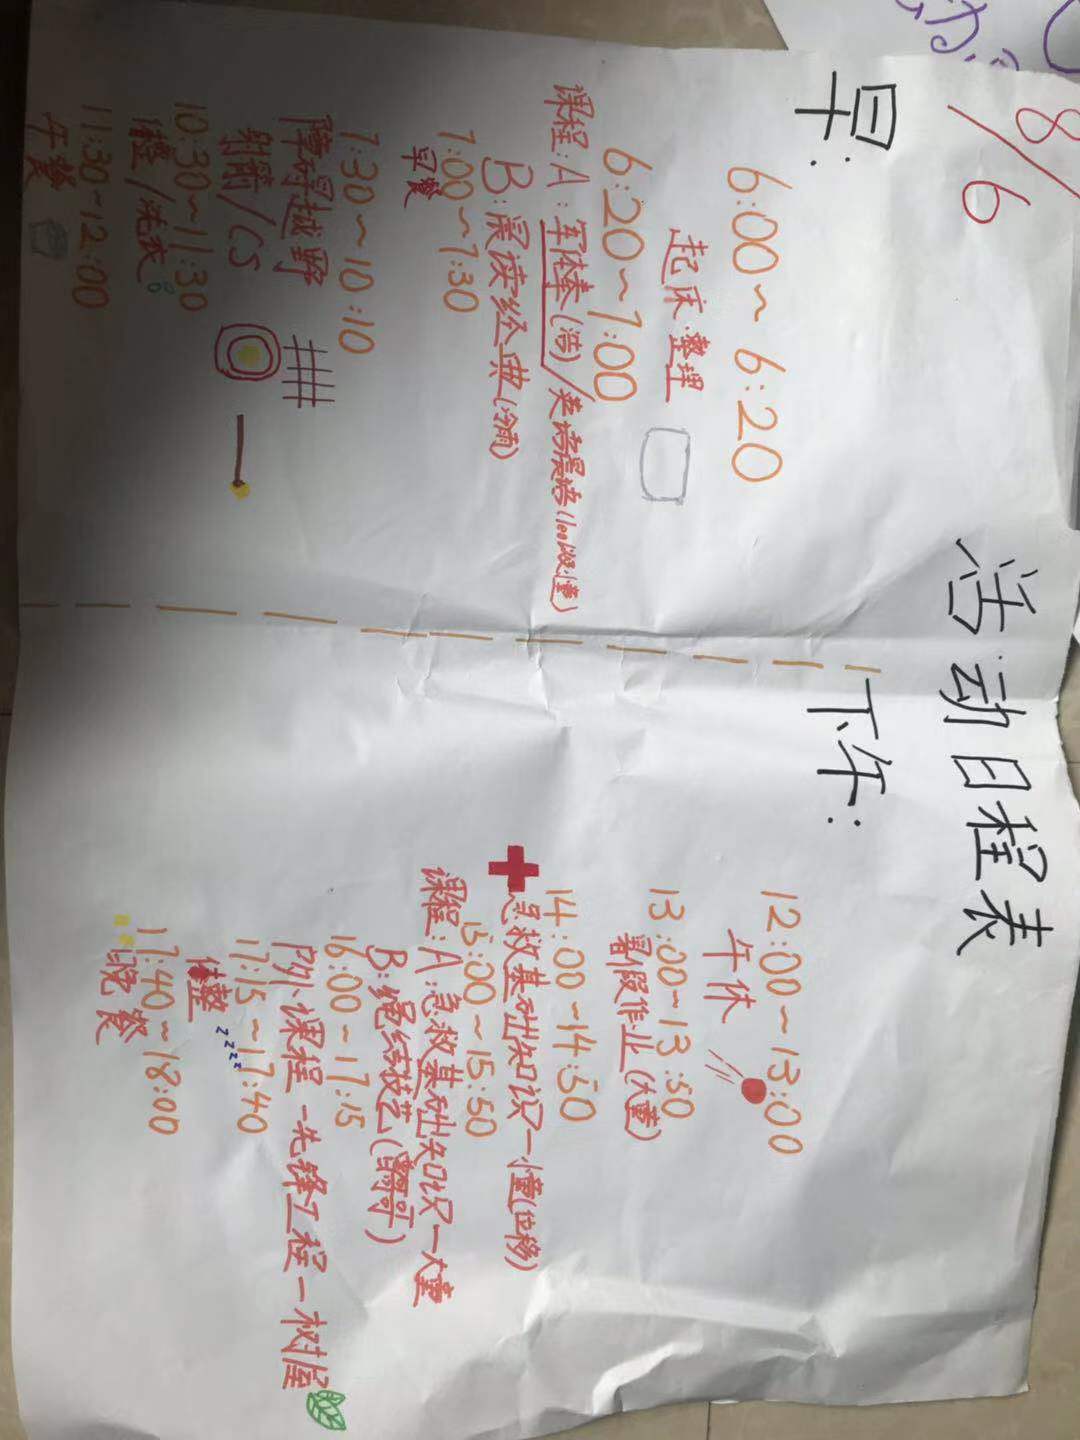 8/6
活动日程表
早:
6:00～6:20
起床·整理
6:20～7:00
课程:A:军体拳(浩)/英语晨语(leo以及小童)
B:晨读经典(冷雨)
7:00～7:30
早餐
7:30～10:10
障碍越野
射箭/CS
10:30～11:30
休整/洗衣
11:30～12:00
午餐
下午:
12:00～13:00
午休
13:00～13:50
暑假作业(大童)
14:00～14:50
急救基础知识一小童(位移)
15:00～15:50
课程:A:急救基础知识一大童
B:绳结技艺(哥)
16:00～17:15
户外课程一先锋工程一树屋
17:15～17:40
zzzz
休整
17:40～18:00
晚餐